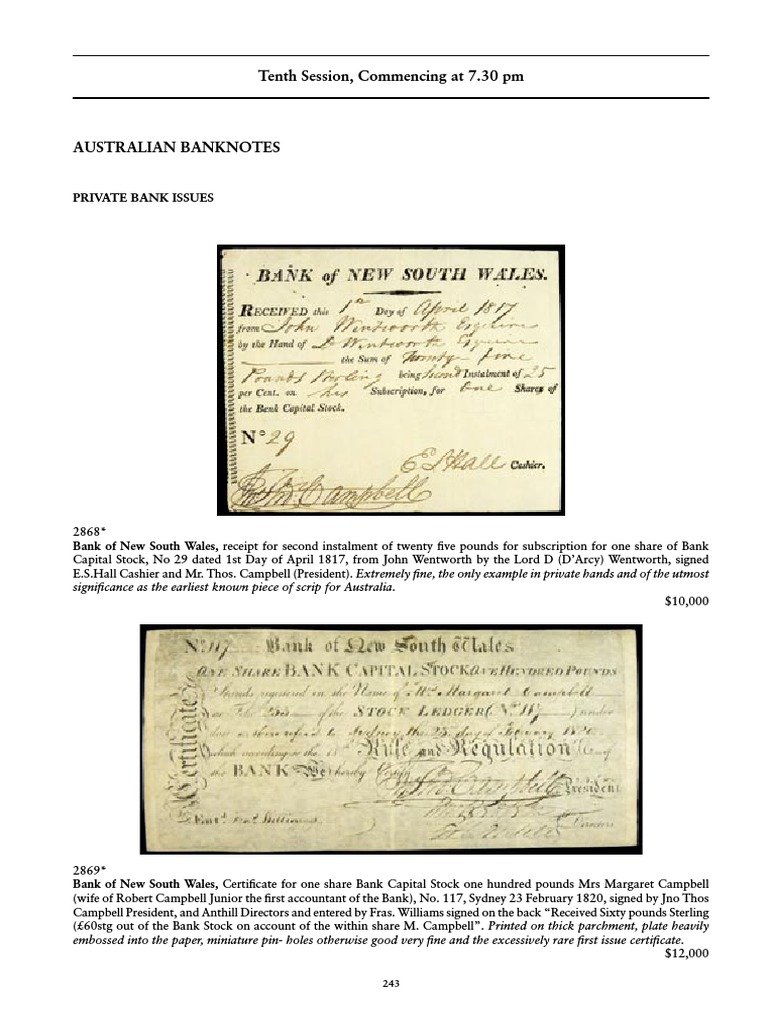 Tenth Session, Commencing at 7.30 pm
AUSTRALIAN BANKNOTES
PRIVATE BANK ISSUES
BANK of NEW SOUTH WALES.
RECEIVED this 1st Day of April 1817
from John Wentworth Esquire
by the Hand of D Wentworth Esquire
the Sum of Twenty five
Pounds Sterling being second Instalment of 25
per Cent. on his Subscription, for One Shares of
the Bank Capital Stock.
N° 29
E S Hall Cashier.
Campbell
2868*
Bank of New South Wales, receipt for second instalment of twenty five pounds for subscription for one share of Bank
Capital Stock, No 29 dated 1st Day of April 1817, from John Wentworth by the Lord D (D’Arcy) Wentworth, signed
E.S.Hall Cashier and Mr. Thos. Campbell (President). Extremely fine, the only example in private hands and of the utmost
significance as the earliest known piece of scrip for Australia.
$10,000
No. 117 Bank of New South Wales
ONE SHARE BANK CAPITAL STOCK ONE HUNDRED POUNDS
Stands registered in the Name of Mrs Margaret Campbell
of the STOCK LEDGER (No. 117) under
Sydney, the 23 day of
which according to the Rule and Regulation of
the BANK We hereby Certify
Campbell President
Entd. Williams Directors
Certificate
2869*
Bank of New South Wales, Certificate for one share Bank Capital Stock one hundred pounds Mrs Margaret Campbell
(wife of Robert Campbell Junior the first accountant of the Bank), No. 117, Sydney 23 February 1820, signed by Jno Thos
Campbell President, and Anthill Directors and entered by Fras. Williams signed on the back “Received Sixty pounds Sterling
(£60stg out of the Bank Stock on account of the within share M. Campbell”. Printed on thick parchment, plate heavily
embossed into the paper, miniature pin- holes otherwise good very fine and the excessively rare first issue certificate.
$12,000
243